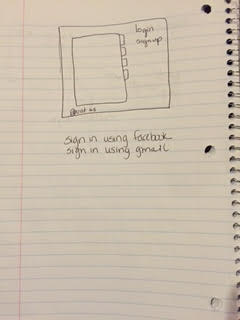 login
signup
about us
sign in using facebook
sign in using gmail